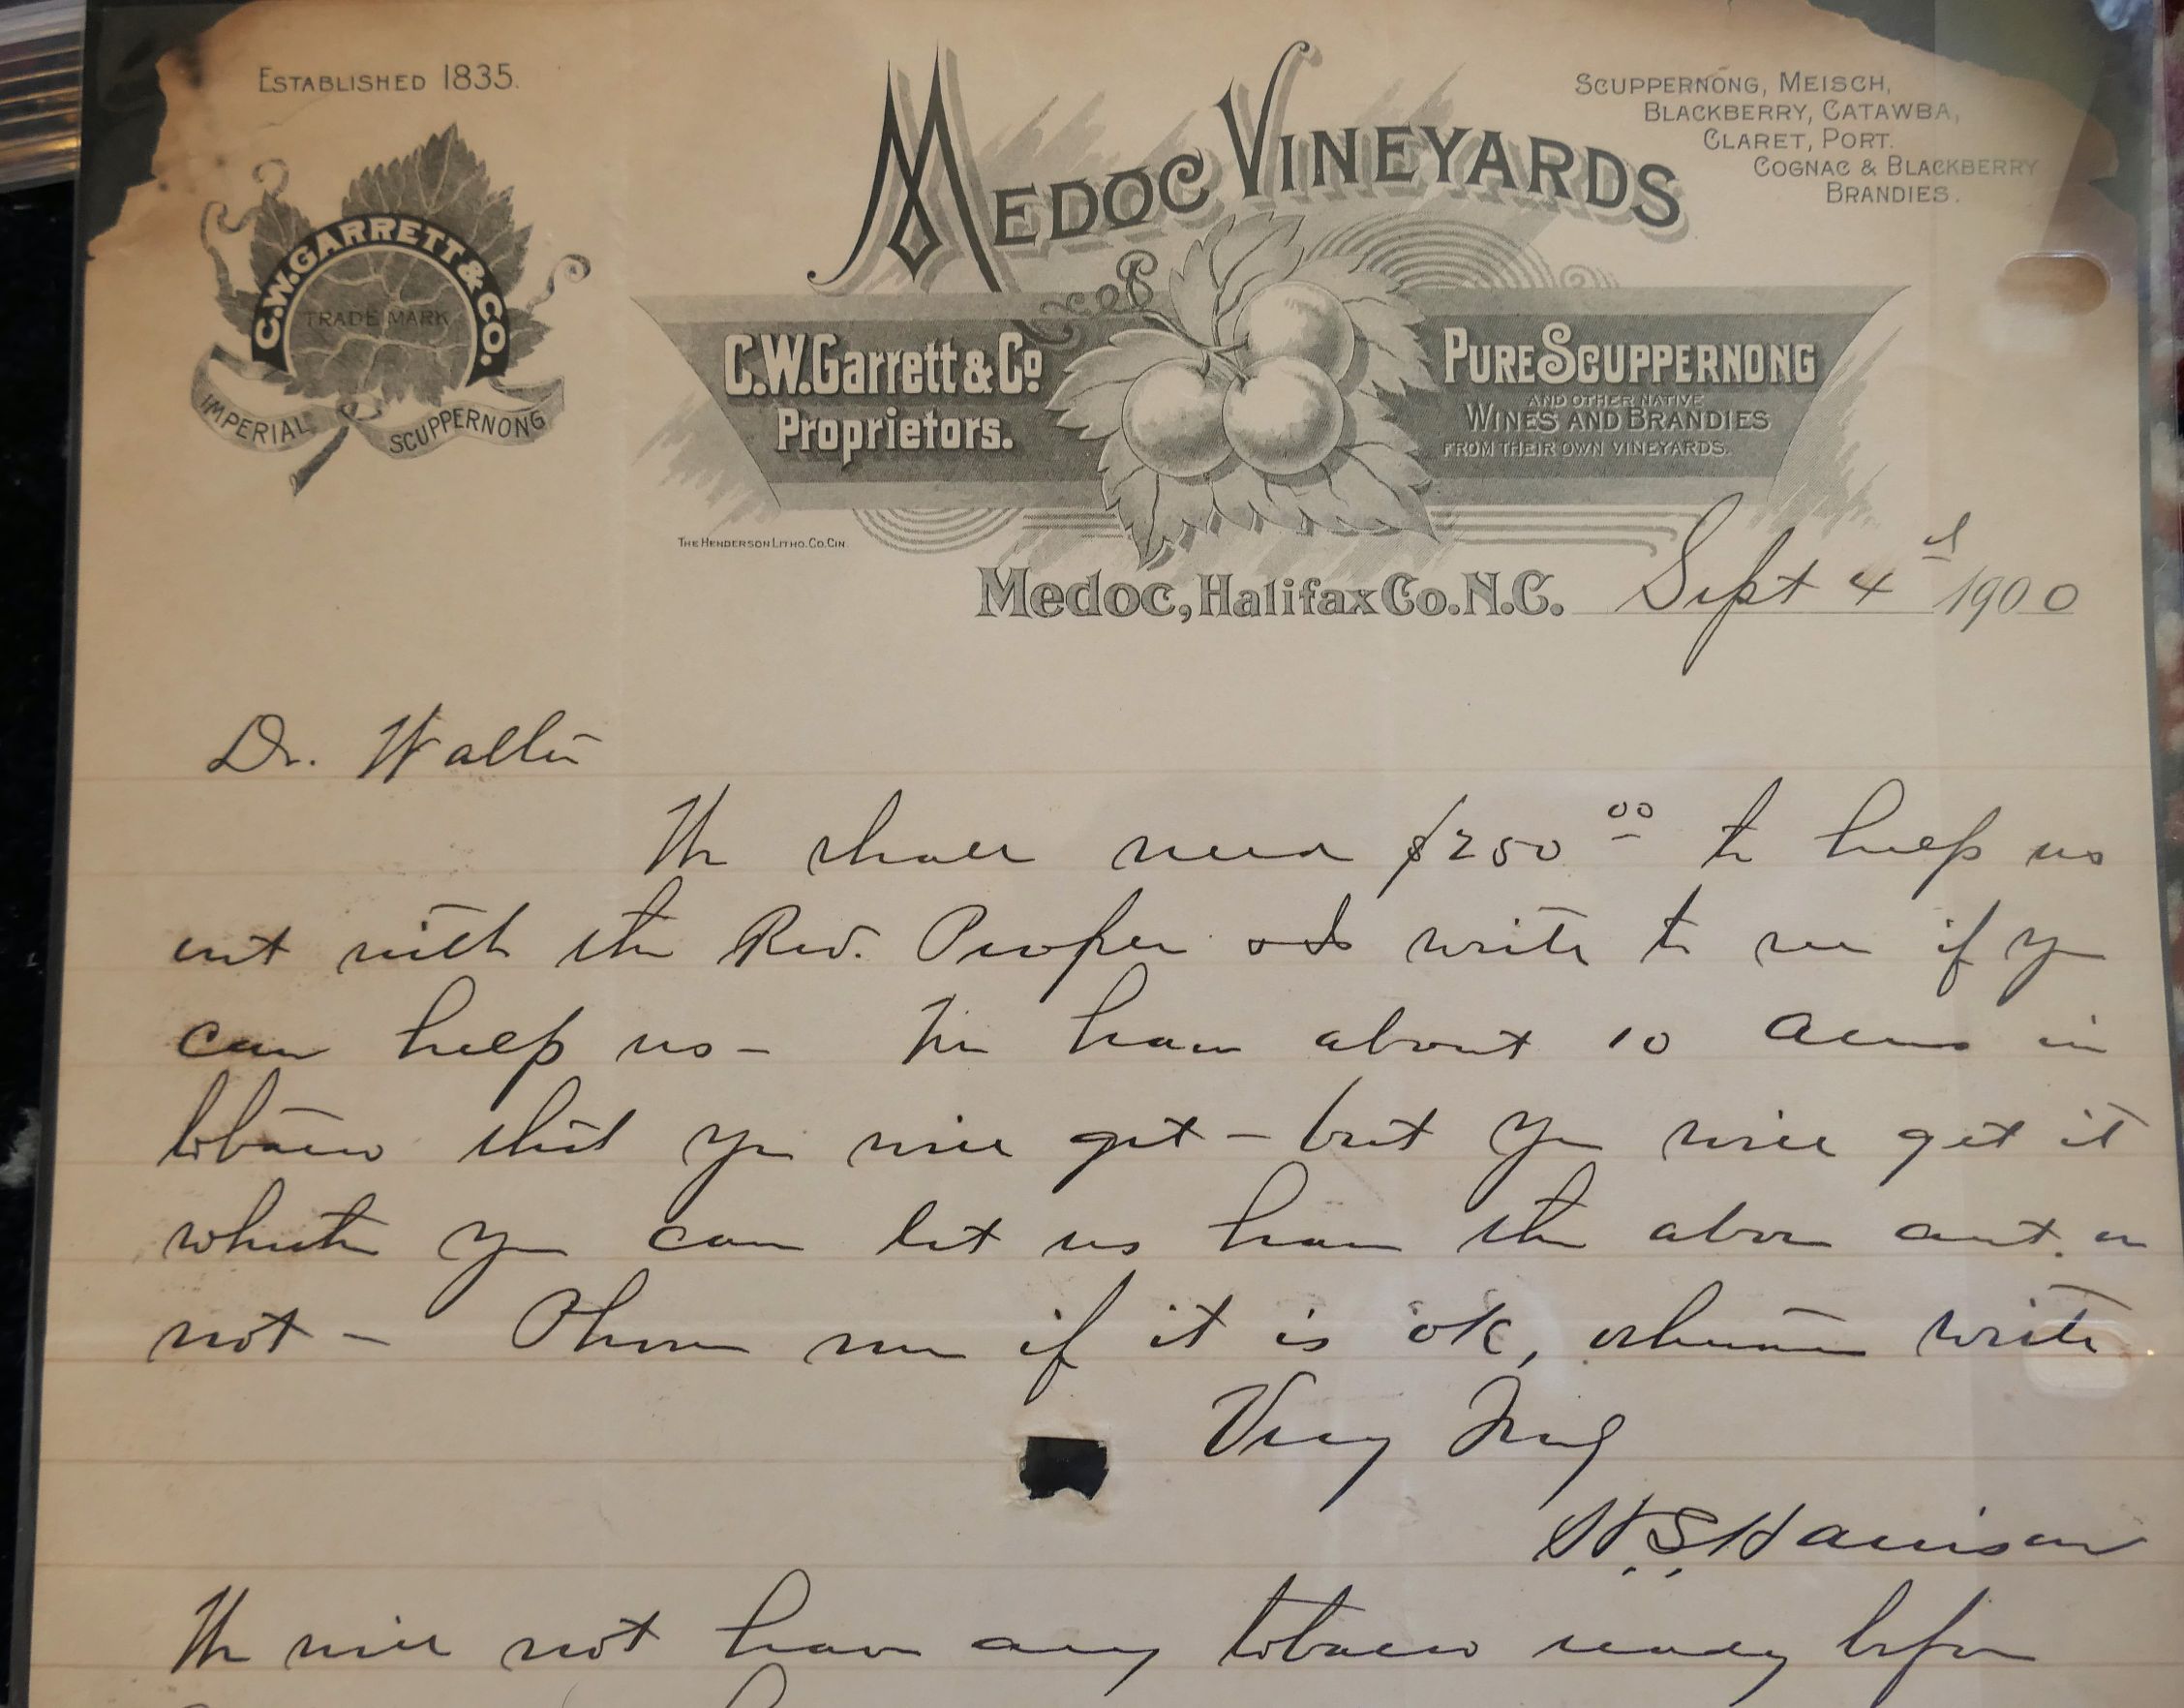 ESTABLISHED 1835.
C.W.GARRETT & CO.
TRADE MARK
IMPERIAL SCUPPERNONG
MEDOC VINEYARDS
SCUPPERNONG, MEISCH,
BLACKBERRY, CATAWBA,
CLARET, PORT.
COGNAC & BLACKBERRY
BRANDIES.
C.W.Garrett & Co
Proprietors.
PURE SCUPPERNONG
AND OTHER NATIVE
WINES AND BRANDIES
FROM THEIR OWN VINEYARDS.
THE HENDERSON LITHO. CO. CIN.
Medoc, Halifax Co. N.C. Sept 4 1900
Dr. Walter
We shall need $250.00 to help us
out with the Rev. write to me if you
can help us - We have about 10 Acres in
tobacco that you will get - but you will get it
whether you can let us have the above amt. or
not - Phone me if it is OK, otherwise write
Very Truly
W.S. Harrison
We will not have any tobacco ready before